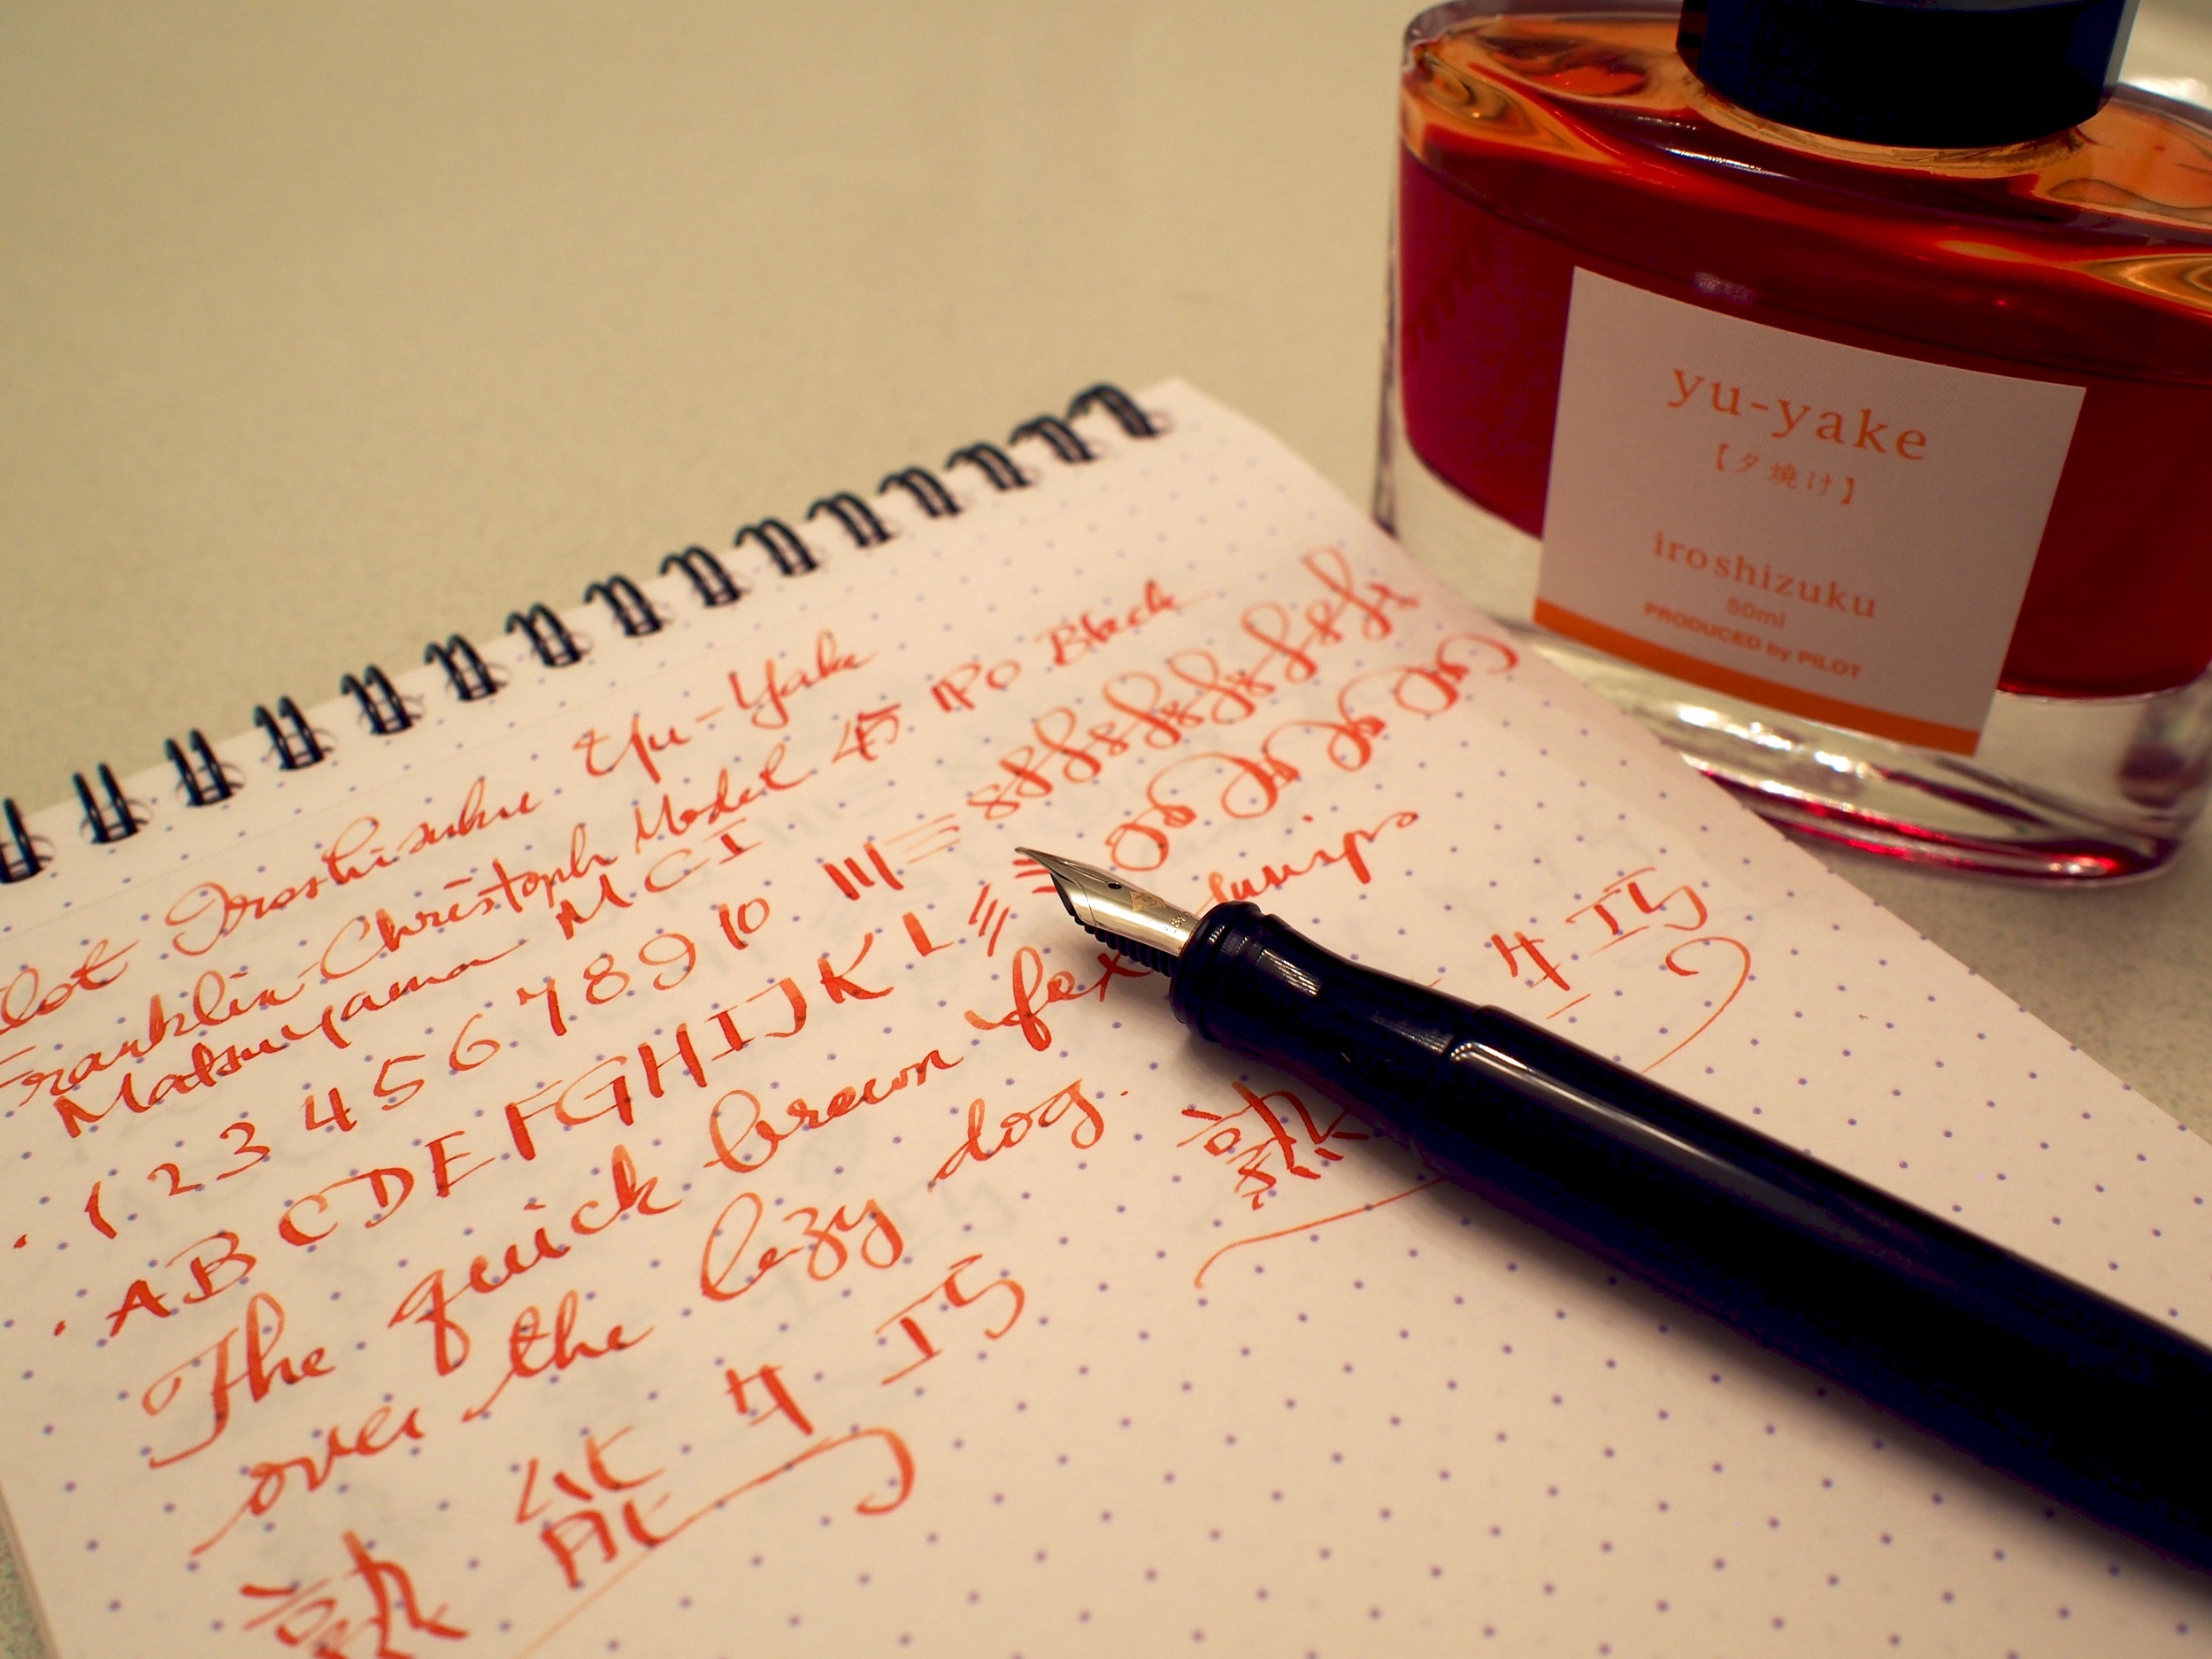 yu-yake
【夕焼け】
iroshizuku
50ml
PRODUCED by PILOT
Iroshizuku Yu-Yake
Franklin-Christoph Model 45 IPO Black
Matsuyama M C I
1 2 3 4 5 6 7 8 9 10
A B C D E F G H I J K L
The quick brown fox jumps
over the lazy dog.
熟能生巧
熟 生巧